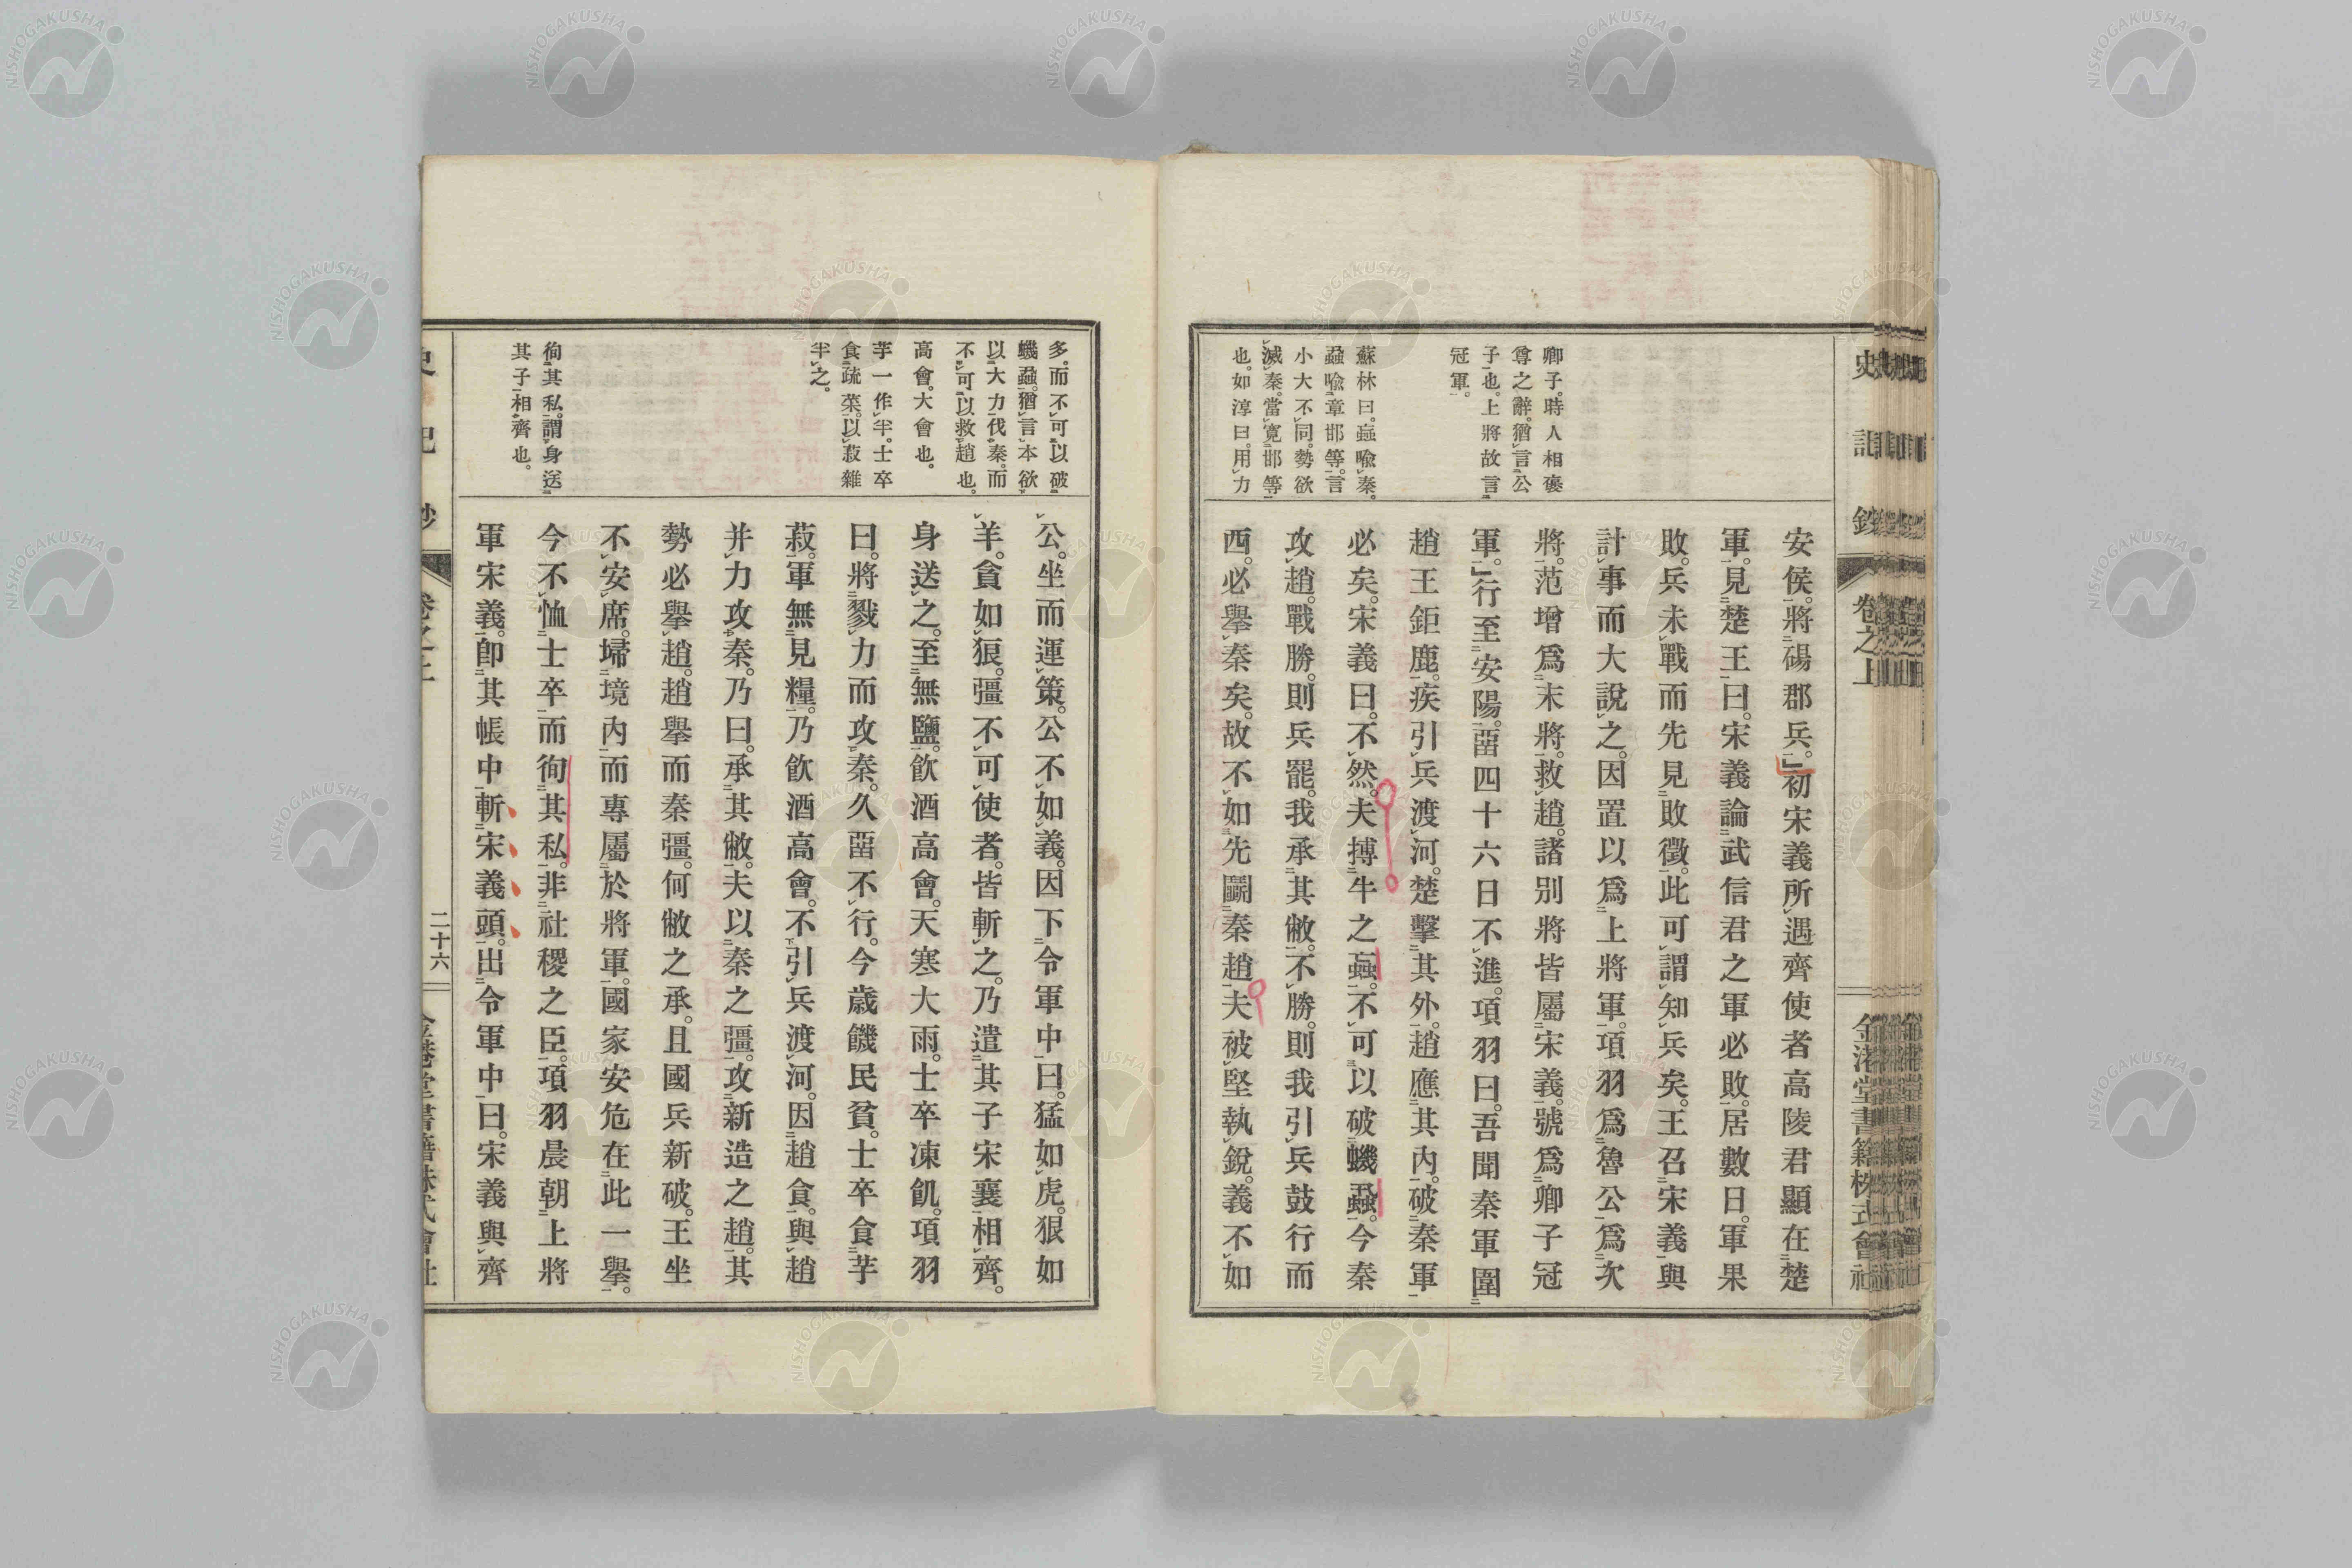 史記鈔
卷之上
金港堂書籍株式會社
卿子。時人相褒
尊之辭。猶言公
子也。上將故言
冠軍。
蘇林曰。蝱喩秦。
蝨喩章邯等。言
小大不同。勢欲
滅秦。當寛邯等
也。如淳曰。用力
安侯。將碭郡兵。」初宋義所遇齊使者高陵君顯在楚
軍。見楚王曰。宋義論武信君之軍必敗。居數日。軍果
敗。兵未戰而先見敗徵。此可謂知兵矣。王召宋義與
計事而大說之。因置以爲上將軍。項羽爲魯公爲次
將。范增爲末將。救趙。諸別將皆屬宋義。號爲卿子冠
軍。」行至安陽。畱四十六日不進。項羽曰。吾聞秦軍圍
趙王鉅鹿。疾引兵渡河。楚擊其外。趙應其內。破秦軍
必矣。宋義曰。不然。夫搏牛之蝱。不可以破蟣蝨。今秦
攻趙。戰勝。則兵罷。我承其敝。不勝。則我引兵鼓行而
西。必擧秦矣。故不如先鬭秦趙。夫被堅執銳。義不如
多。而不可以破
蟣蝨。猶言本欲
以大力伐秦。而
不可以救趙也。
高會。大會也。
芋一作半。士卒
食蔬菜。以菽雜
半之。
徇其私。謂身送
其子相齊也。
公。坐而運策。公不如義。因下令軍中曰。猛如虎。狠如
羊。貪如狼。彊不可使者。皆斬之。乃遣其子宋襄相齊。
身送之。至無鹽。飮酒高會。天寒大雨。士卒凍飢。項羽
曰。將戮力而攻秦。久畱不行。今歲饑民貧。士卒食芋
菽。軍無見糧。乃飮酒高會。不引兵渡河。因趙食。與趙
幷力攻秦。乃曰。承其敝。夫以秦之彊。攻新造之趙。其
勢必擧趙。趙擧而秦彊。何敝之承。且國兵新破。王坐
不安席。埽境內而專屬於將軍。國家安危在此一擧。
今不恤士卒而徇其私。非社稷之臣。項羽晨朝上將
軍宋義。卽其帳中斬宋義頭。出令軍中曰。宋義與齊
二十六